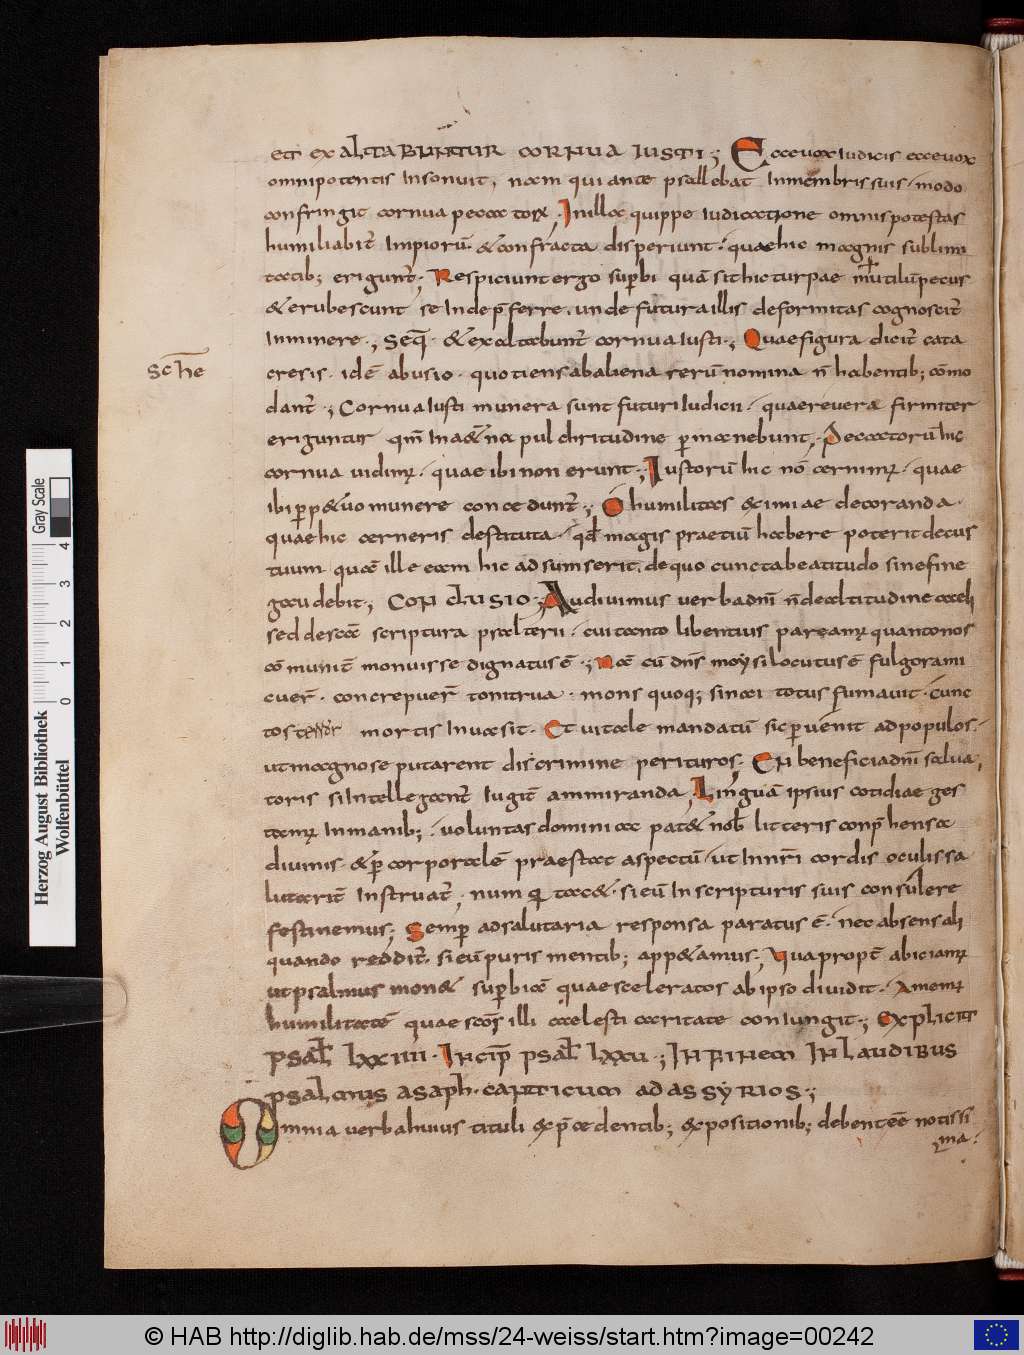 et exaltabuntur cornua iusti; Ecce vox iudicis ecce vox
omnipotentis insonuit, nam qui ante psallebat in membris suis · modo
confringit cornua peccatorꝝ. In illa quippe iudicatione omnis potestas
humiliabit̄ impiorū · & confracta disperiunt · quae hic magnis sublimi
tatib; eriguntˀ; Respiciunt ergo suꝑbi quā sit hic turpae mutilū pecus
& erubescunt se inde p̄ferre, unde futura illis deformitas cognoscit̄
inminere·, Seq̄ · & exaltabunt̄ cornua iusti·; Quae figura dicit̄ cata
Schē
cresis · idē abusio · quotiens ab aliena rerū nomina n̄ habentib; cōmo
dant̄·; Cornua iusti munera sunt futuri iudicii · quae revera firmiter
eriguntur qm̄ in aeterna pulchritudine ꝑmanebunt,· Peccatorū hic
cornua vidimꝰ · quae ibi non erunt·; Iustorū hic nō cernimꝰ · quae
ibi ꝑp&uo munere concedunt̄·; O humilitas eximiae decoranda ·
quae hic cerneris destituta · qđ magis praetiū habere poterit decus
tuum quā ille eam hic adsumserit, de quo cuncta beatitudo sine fine
gaudebit·; Conclusio·; Audivimus verba dn̄i n̄ de altitudine caeli
sed de scā scriptura psalterii · cui tanto libentius pareamꝰ quanto nos
cōmunit̄ monuisse dignatus ē·; Nā cū dn̄s moysi locutus ē fulgora mi
cuer̄ · concrepuer̄ tonitrua · mons quoq; sinai totus fumavit · cunc
tos terror mortis invasit · Et vitale mandatū sic ꝑvenit ad populos ·
ut magno se putarent discrimine perituros; En beneficia dn̄i salva
toris si intellegant̄ iugit̄ ammiranda, Linguā ipsius cotidiae ges
tamꝰ in manib; · voluntas domini ac pat& nob̄ litteris conp̄hensa
divinis · & ꝑ corporalē praestat aspectū · ut in nr̄i cordis oculis sa
lutarit̄ instruat̄; numquā tac& · si eū in scripturis suis consulere
festinemus; Semꝑ ad salutaria responsa paratus ē · nec absens ali
quando reddit̄ · si eū puris mentib; app&amus·; Qua propt̄ abiciamꝰ
ut psalmus mon& suꝑbiā quae sceleratos ab ipso dividit · Amemꝰ
humilitatē quae scōs illi caelesti caritate coniungit·; Explicit
psal̄ lxxiiii · Incip̄ psal̄ lxxv·; In finem in laudibus
psalmus asaph · canticum ad assyrios·;
Omnia verba huius tituli ex p̄cedentib; expositionib; debent eē notissi
ma·
Herzog August Bibliothek
Wolfenbüttel
0 1 2 3 4
Gray Scale
© HAB http://diglib.hab.de/mss/24-weiss/start.htm?image=00242